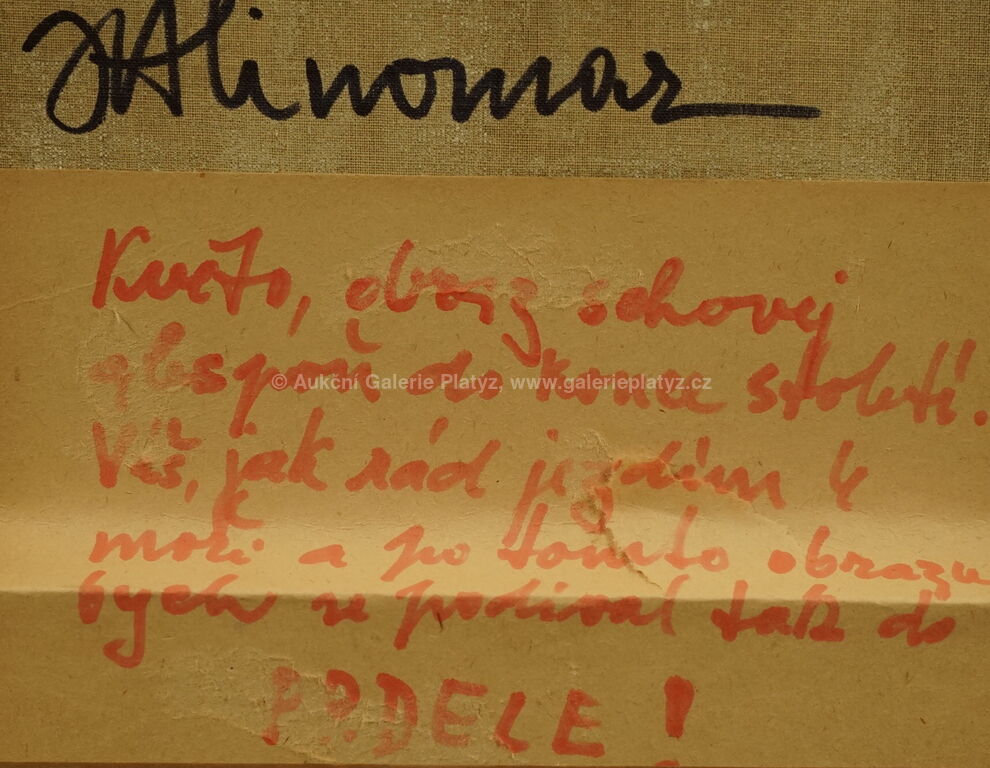 Alinomar
Květo, obraz schovej
alespoň do konce století.
© Aukční Galerie Platyz, www.galerieplatyz.cz
Víš, jak rád jezdím k
moři a po tomto obrazu
bych se podíval tak do
P?DELE!